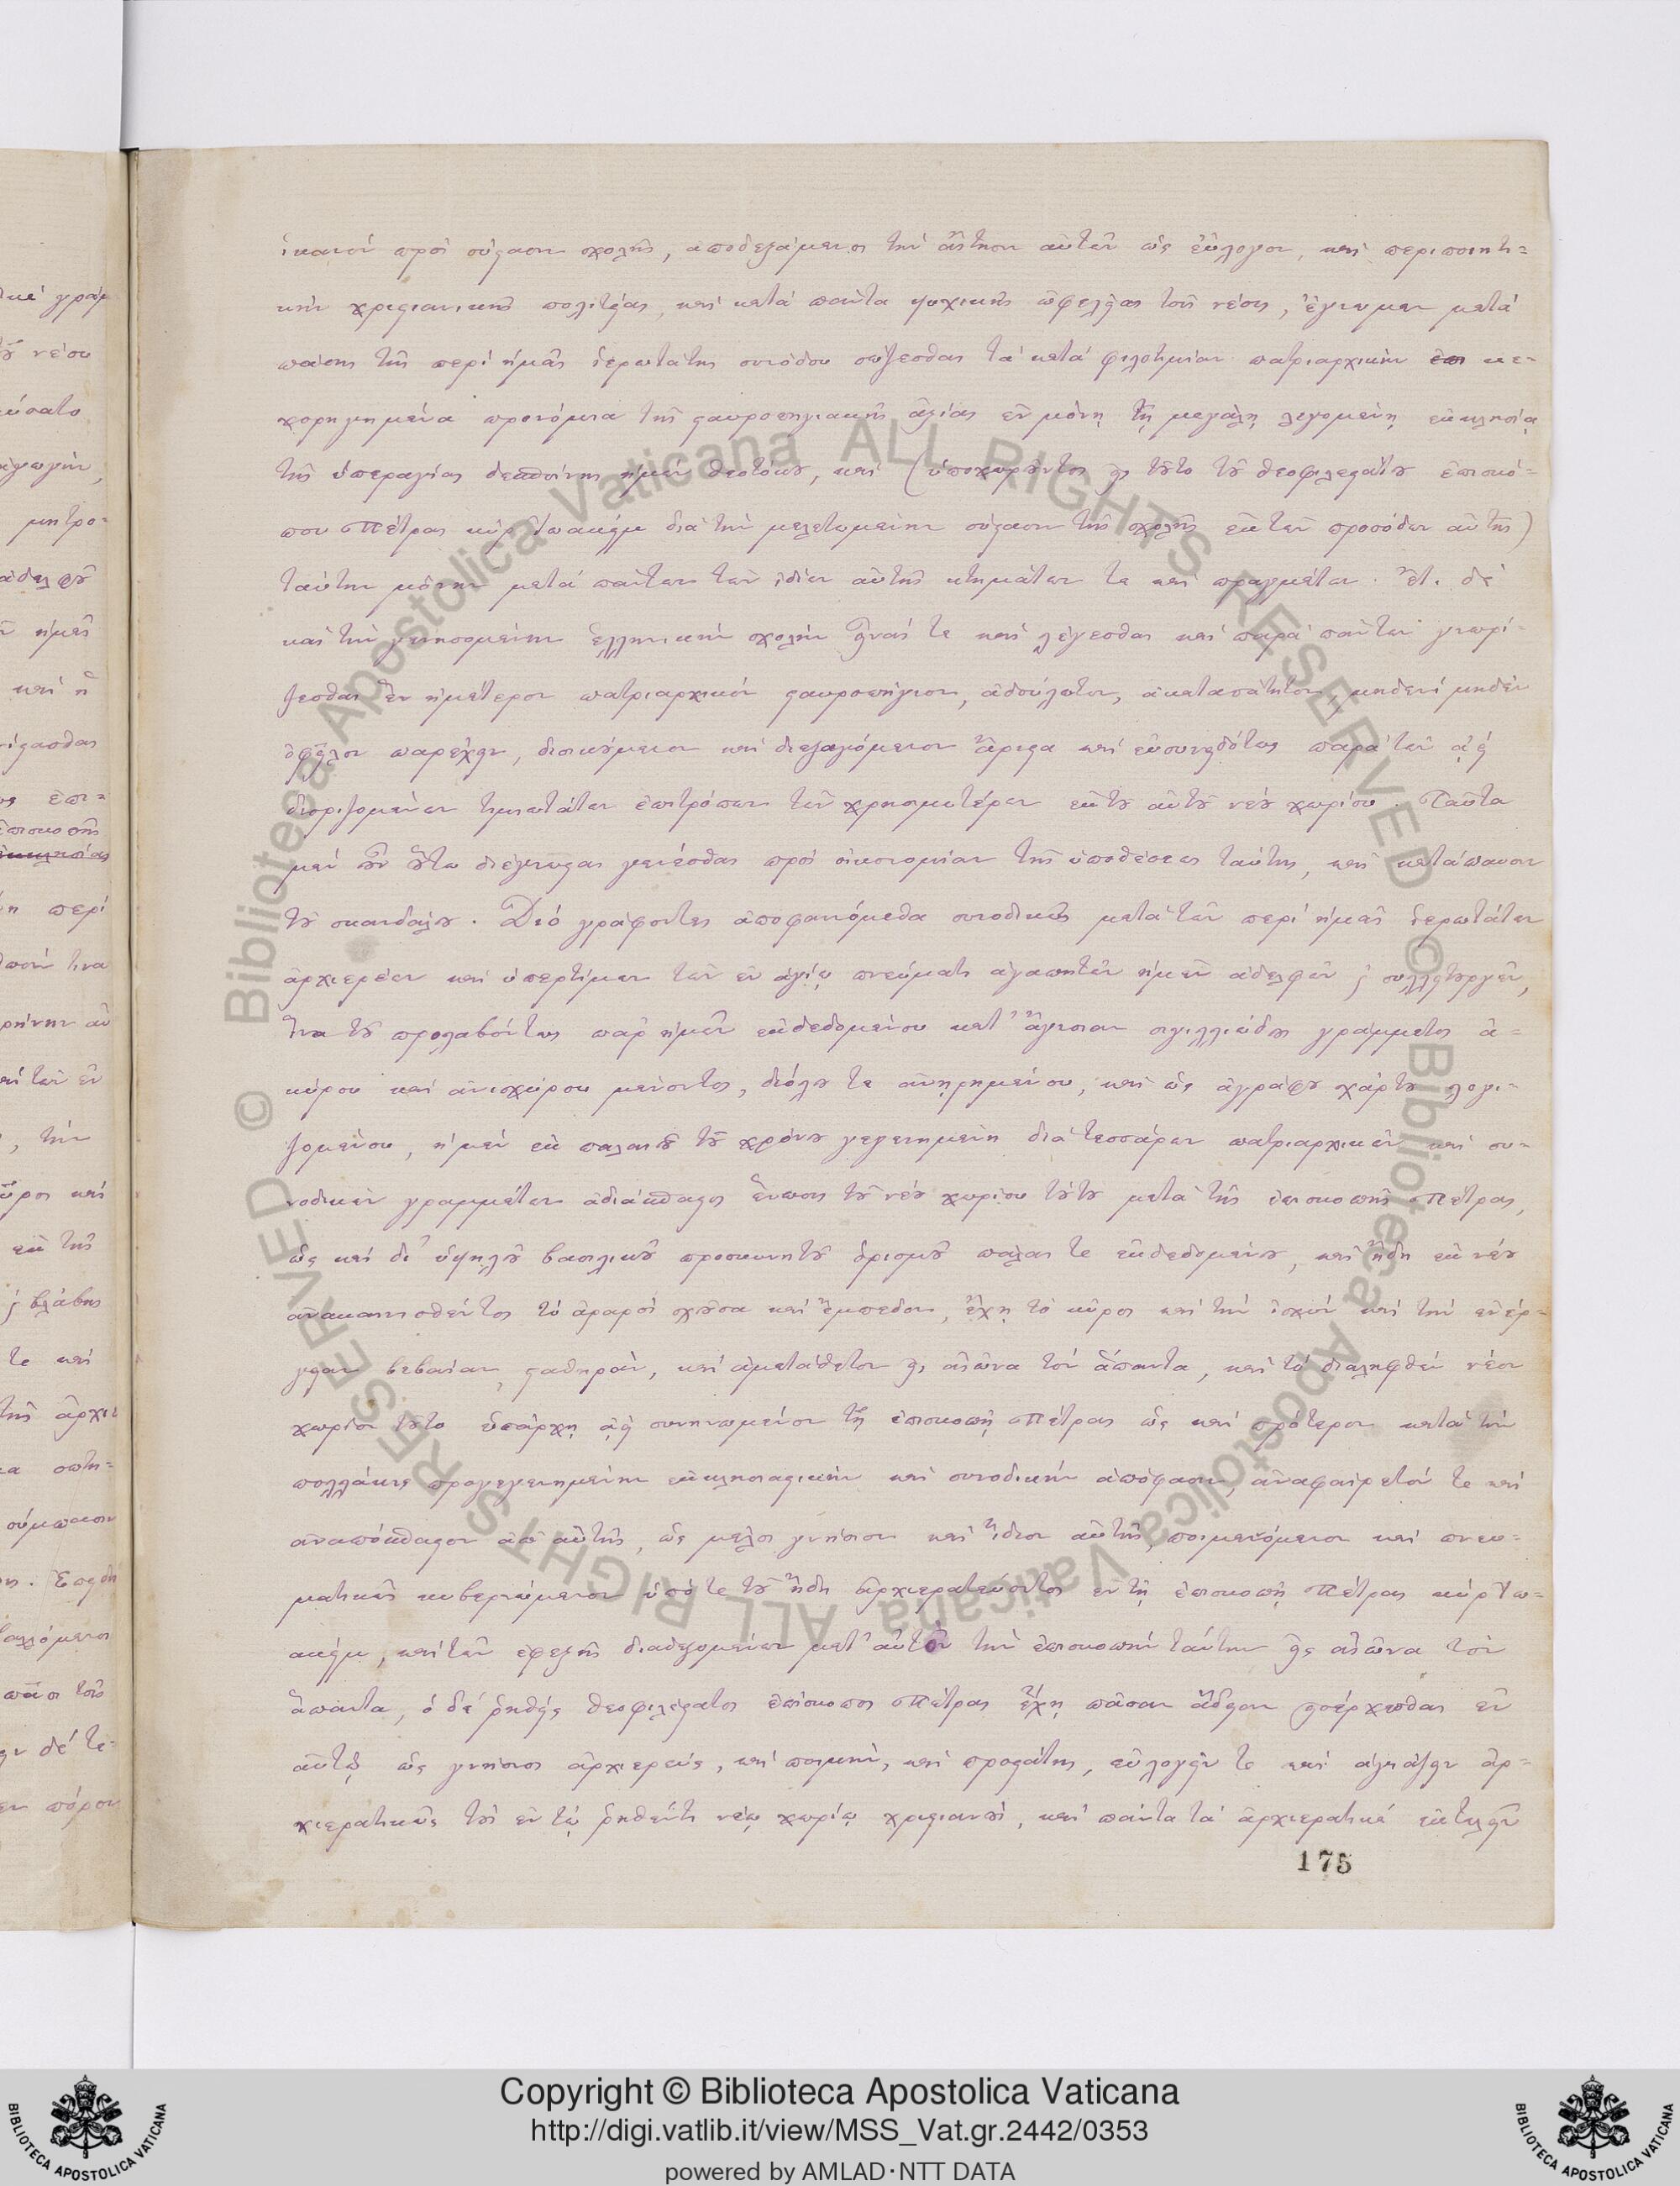 ἱκανὸν πρὸς σύστασιν σχολῆς, ἀποδεξάμενοι τὴν αἴτησιν αὐτῶν ὡς εὔλογον, καὶ περιποιητι-
κὴν χριστιανικῆς πολιτείας, καὶ κατὰ πάντα ψυχικῆς ὠφελείας τοῖς νέοις, ἔγνωμεν μετὰ
πάσης τῆς περὶ ἡμᾶς ἱερωτάτης συνόδου σώζεσθαι τὰ κατὰ φιλοτιμίαν πατριαρχικὴν κε-
χορηγημένα προνόμια τῆς σταυροπηγιακῆς ἀξίας ἐν μόνῃ τῇ μεγάλῃ λεγομένῃ ἐκκλησίᾳ
τῆς ὑπεραγίας δεσποίνης ἡμῶν θεοτόκου, καὶ (ὑποχωροῦντος εἰς τοῦτο τοῦ θεοφιλεστάτου ἐπισκό-
που Πέτρας κὺρ Ἰωακεὶμ διὰ τὴν μελετωμένην σύστασιν τῆς σχολῆς ἐκ τῶν προσόδων αὐτῆς)
ταύτην μόνην μετὰ πάντων τῶν ἰδίων αὐτῆς κτημάτων τε καὶ πραγμάτων. ἔτι δὲ
καὶ τὴν γενησομένην ἑλληνικὴν σχολὴν εἶναί τε καὶ λέγεσθαι καὶ παρὰ πάντων γνωρί-
ζεσθαι ἓν ἡμέτερον πατριαρχικὸν σταυροπήγιον, ἀδούλωτον, ἀκαταπάτητον, μηδενὶ μηδὲν
ὀφεῖλον παρέχειν, διοικούμενον καὶ διεξαγόμενον ἄριστα καὶ εὐσυνειδότως παρὰ τῶν ἀεὶ
διοριζομένων τιμιωτάτων ἐπιτρόπων τῶν χρησιμωτέρων ἐκ τοῦ αὐτοῦ νέου χωρίου. Ταῦτα
μὲν οὖν οὕτω διέγνωσται γενέσθαι πρὸς οἰκονομίαν τῆς ὑποθέσεως ταύτης, καὶ κατάπαυσιν
τοῦ σκανδάλου. Διὸ γράφοντες ἀποφαινόμεθα συνοδικῶς μετὰ τῶν περὶ ἡμᾶς ἱερωτάτων
ἀρχιερέων καὶ ὑπερτίμων τῶν ἐν ἁγίῳ πνεύματι ἀγαπητῶν ἡμῶν ἀδελφῶν καὶ συλλειτουργῶν,
ἵνα τοῦ προλαβόντως παρ' ἡμῶν ἐκδεδομένου κατ' ἄγνοιαν σιγιλλιώδους γράμματος ἀ-
κύρου καὶ ἀνισχύρου μένοντος, διόλου τε ἀνῃρημένου, καὶ ὡς ἀγράφου χάρτου λογι-
ζομένου, ἡ μὲν ἐκ παλαιοῦ τοῦ χρόνου γεγενημένη διὰ τεσσάρων πατριαρχικῶν καὶ συ-
νοδικῶν γραμμάτων ἀδιάσπαστος ἕνωσις τοῦ νέου χωρίου τούτου μετὰ τῆς ἐπισκοπῆς Πέτρας,
ὡς καὶ δι' ὑψηλοῦ βασιλικοῦ προσκυνητοῦ ὁρισμοῦ πάλαι τε ἐκδεδομένου, καὶ ἤδη ἐκ νέου
ἀνακαινισθέντος τὸ ἀραρὸς σχοῦσα καὶ ἔμπεδον, ἔχῃ τὸ κῦρος καὶ τὴν ἰσχὺν καὶ τὴν ἐνέρ-
γειαν βεβαίαν, σταθηρὰν, καὶ ἀμετάθετον εἰς αἰῶνα τὸν ἅπαντα, καὶ τὸ διαληφθὲν νέον
χωρίον τοῦτο ὑπάρχῃ ἀεὶ συνηνωμένον τῇ ἐπισκοπῇ Πέτρας ὡς καὶ πρότερον κατὰ τὴν
πολλάκις προγεγενημένην ἐκκλησιαστικὴν καὶ συνοδικὴν ἀπόφασιν, ἀναφαίρετόν τε καὶ
ἀναπόσπαστον ἀπ' αὐτῆς, ὡς μέλος γνήσιον καὶ ἴδιον αὐτῆς, ποιμενόμενον καὶ πνευ-
ματικῶς κυβερνώμενον ὑπό τε τοῦ ἤδη ἀρχιερατεύοντος ἐν τῇ ἐπισκοπῇ Πέτρας κὺρ Ἰω-
ακεὶμ, καὶ τῶν ἐφεξῆς διαδεξομένων μετ' αὐτὸν τὴν ἐπισκοπὴν ταύτην εἰς αἰῶνα τὸν
ἅπαντα, ὁ δὲ ῥηθεὶς θεοφιλέστατος ἐπίσκοπος Πέτρας ἔχῃ πᾶσαν ἄδειαν εἰσέρχεσθαι ἐν
αὐτῷ ὡς γνήσιος ἀρχιερεὺς, καὶ ποιμὴν, καὶ προστάτης, εὐλογεῖν τε καὶ ἁγιάζειν ἀρ-
χιερατικῶς τοὺς ἐν τῷ ῥηθέντι νέῳ χωρίῳ χριστιανοὺς, καὶ πάντα τὰ ἀρχιερατικὰ ἐκτελεῖν
175
Copyright © Biblioteca Apostolica Vaticana
http://digi.vatlib.it/view/MSS_Vat.gr.2442/0353
powered by AMLAD·NTT DATA